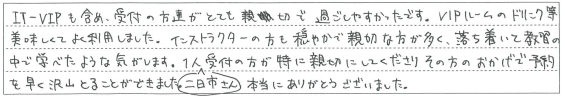 IT-VIPも含め、受付の方達がとても親切で過ごしやすかったです。VIPルームのドリンク等
美味しくてよく利用しました。インストラクターの方も穏やかで親切な方が多く、落ち着いて教習の
中で学べたような気がします。1人受付の方が特に親切にしてくださりその方のおかげで予約
を早く沢山とることができました。二日市さん 本当にありがとうございました。